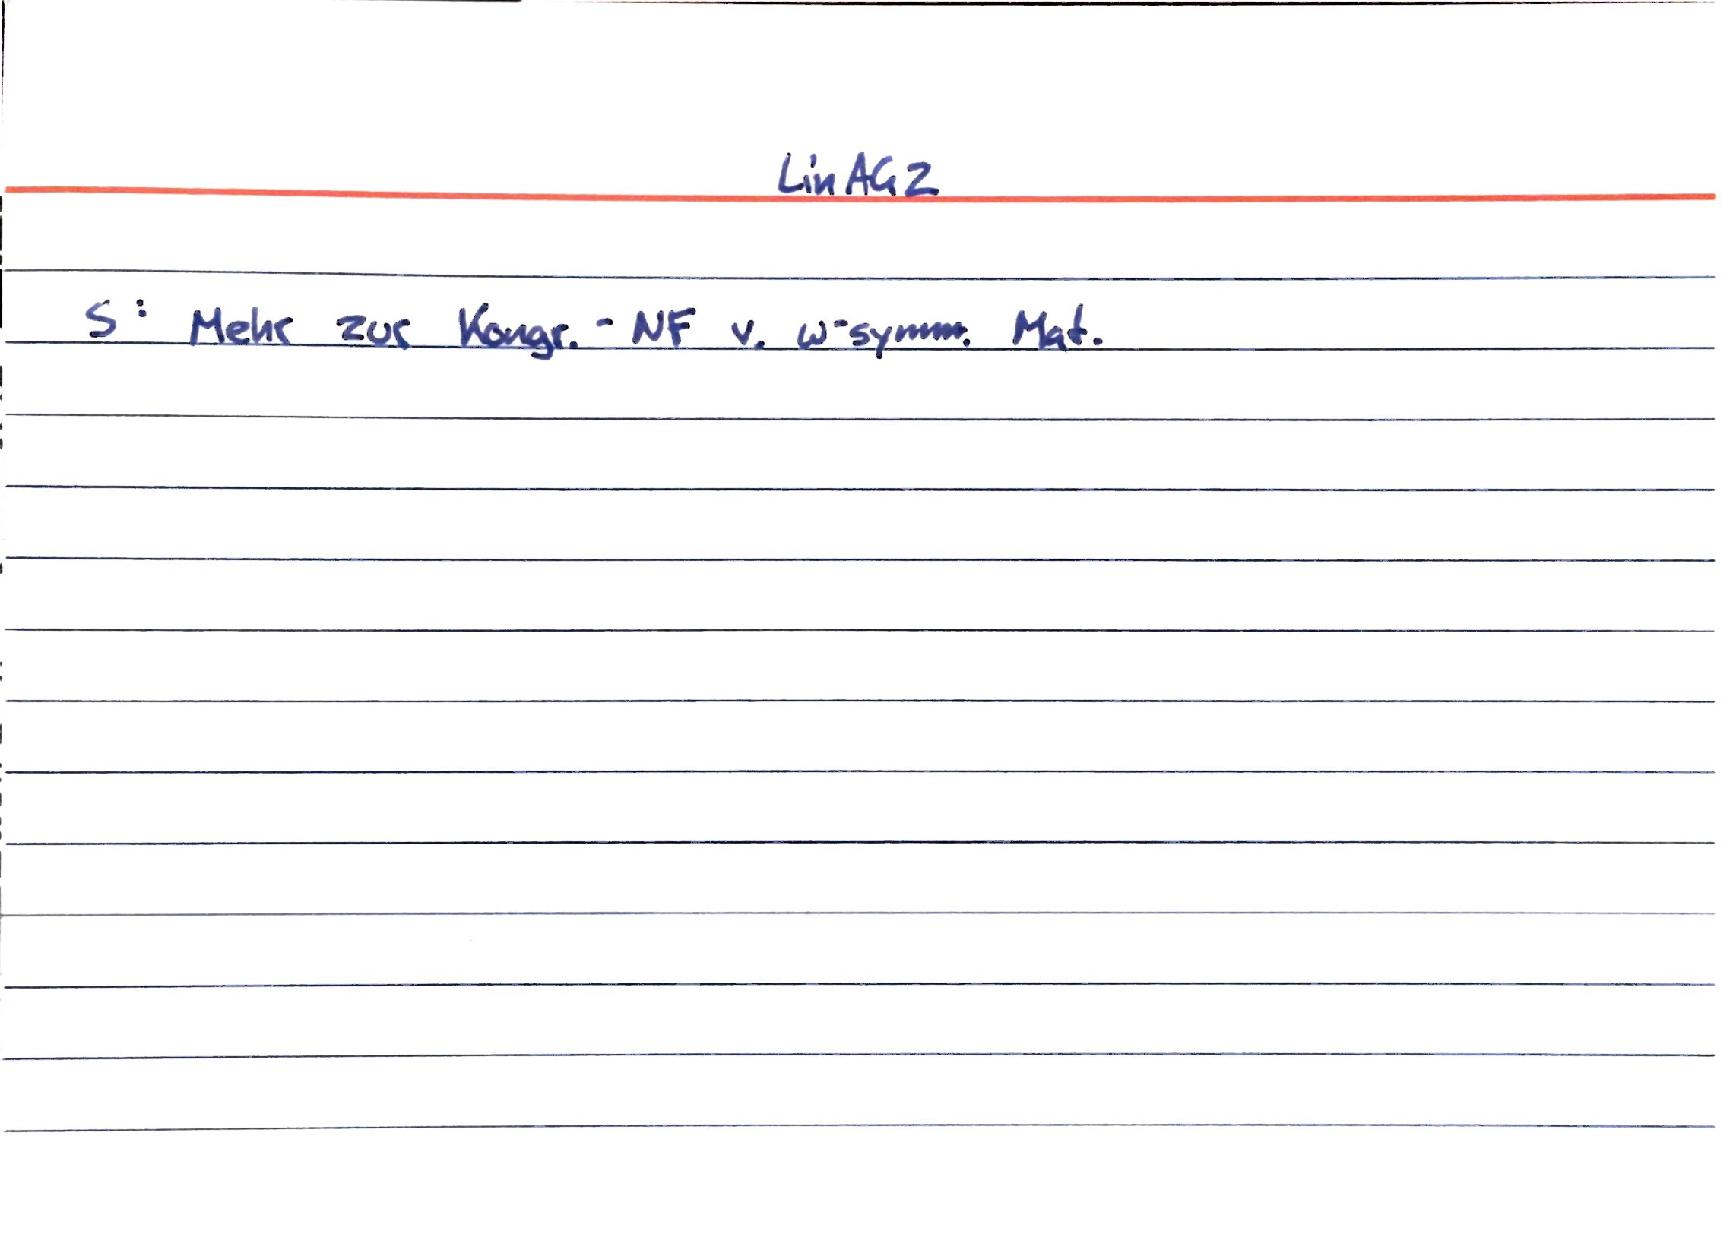 LinAG2
S: Mehr zur Kongr.-NF v. ω-symm. Mat.